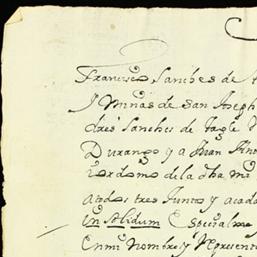 Francisco Sanches de
Y Minas de San Joseph
dres Sanchez de tagle
Durango y a Juan Anto
iordomo de la dha mi
a todos tres Junto y acada
in solidum Especialme
En mi Nombre y Represent